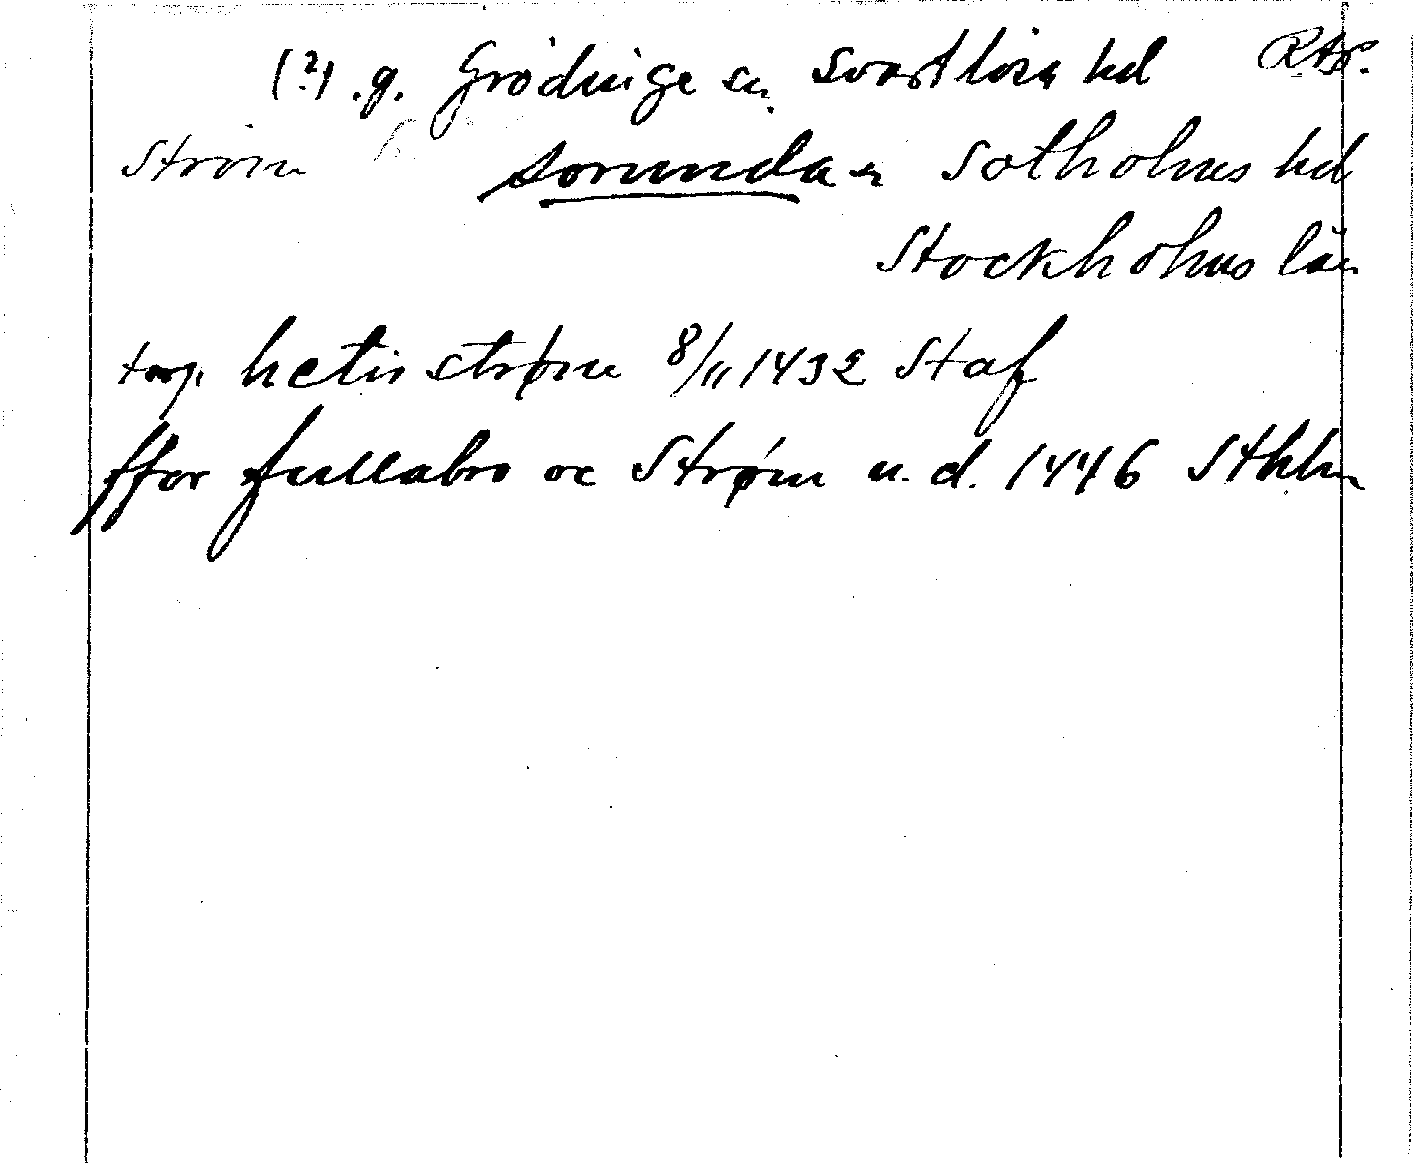 (?) .g. Grödinge sn. Svartlösa hd RAP.
Ström Sorunda sn Sotholms hd
Stockholms län
torp hetir strøm 8/11 1432 Staf
ffor fullabro oc Strøm u.d. 1446 Sthlm